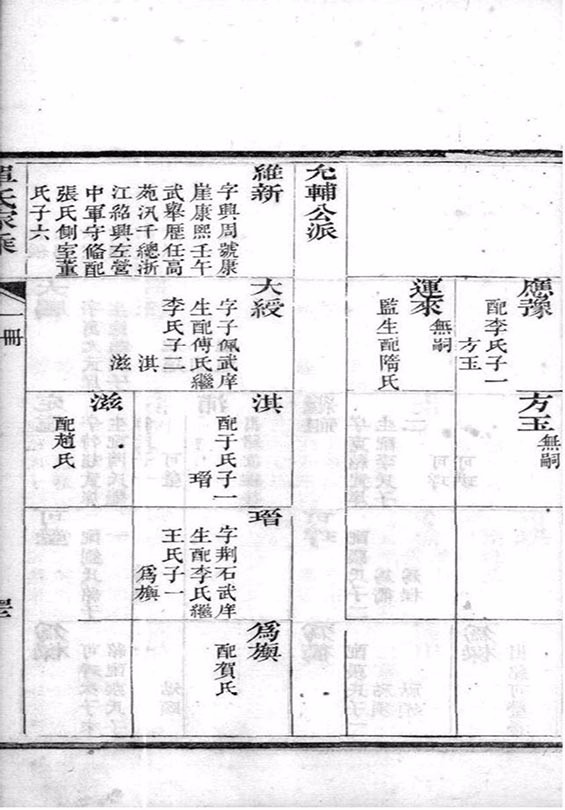 允輔公派
維新
字興周號康
崖康熙壬午
武舉歷任高
苑汛千總浙
江紹興左營
中軍守備配
張氏側室董
氏子六
應豫
配李氏子一
方玉
運來
無嗣
監生配隋氏
大綬
字子佩武庠
生配傅氏繼
李氏子二
淇
滋
方玉
無嗣
淇
配于氏子一
瑨
滋
配趙氏
瑨
字荆石武庠
生配李氏繼
王氏子一
爲旟
爲旟
配賀氏
氏家乘
一冊